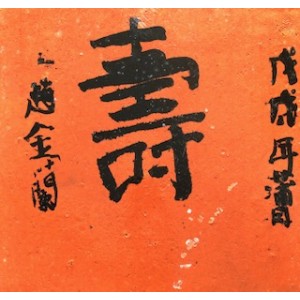 戊戌年蒲月
壽
趙金蘭